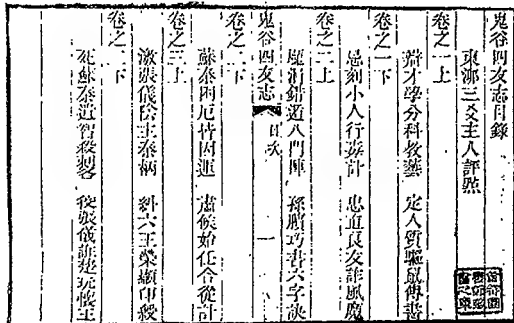 鬼谷四友志目錄
東泖三爻主人評點
卷之一上
辯才學分科教藝　定人質驅鼠傳書
卷之一下
忌刻小人行奸計　忠直良友詐風魔
卷之二上
龐涓錯道八門陣　孫臏巧書六字訣
鬼谷四友志　目次　一
卷之二下
蘇秦兩厄皆因運　肅侯始任合從計
卷之三上
激張儀陰主秦柄　糾六王榮顯印綬
卷之三下
死蘇秦近智殺　張儀詐楚玩懷王